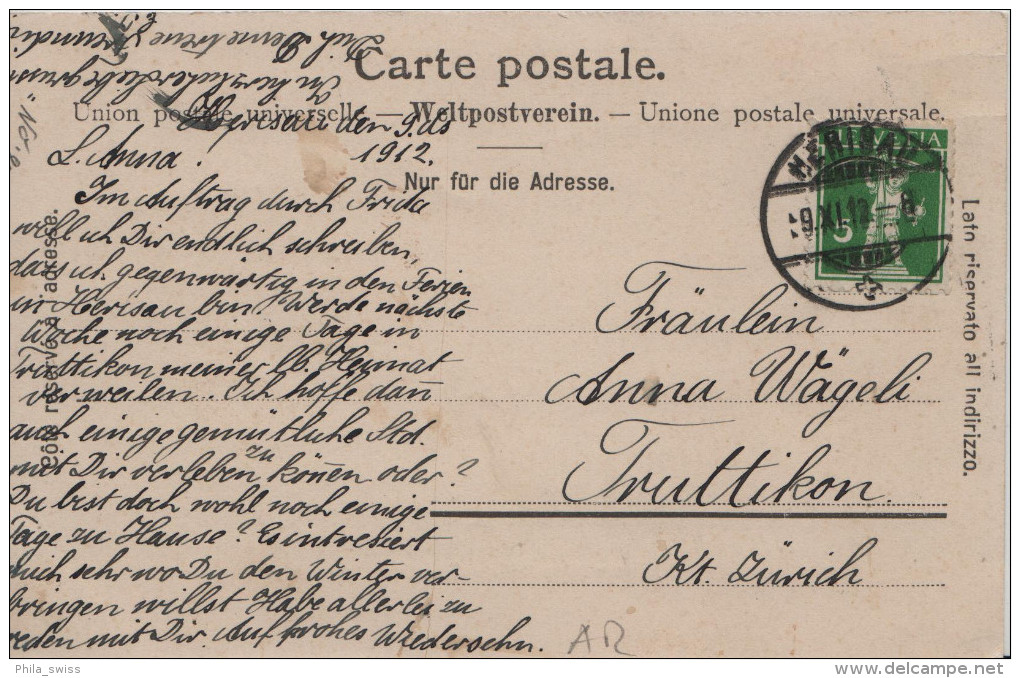 Carte postale.
Union postale universelle. — Weltpostverein. — Unione postale universale.
Nur für die Adresse.
Côté réservé à l'adresse.
Lato riservato all indirizzo.
HELVETIA
5
HERISAU
9.XI.12.–8
Herisau den 9. ds
1912.
L. Anna.
Im Auftrag durch Frida
will ich Dir endlich schreiben,
dass ich gegenwärtig in den Ferien
in Herisau bin. Werde nächste
Woche noch einige Tage in
Truttikon meiner lb. Heimat
verweilen. Ich hoffe dañ
auch einige gemütliche Std.
mit Dir verleben zu köñen oder?
Du bist doch wohl noch einige
Tage zu Hause? Es intresiert
mich sehr wo Du den Winter ver-
bringen willst Habe allerlei zu
reden mit Dir. Auf frohes Wiedersehn.
Dich Deine treue Freundin
Fräulein
Anna Wägeli
Truttikon.
Kt. Zürich
AR
Phila_swiss